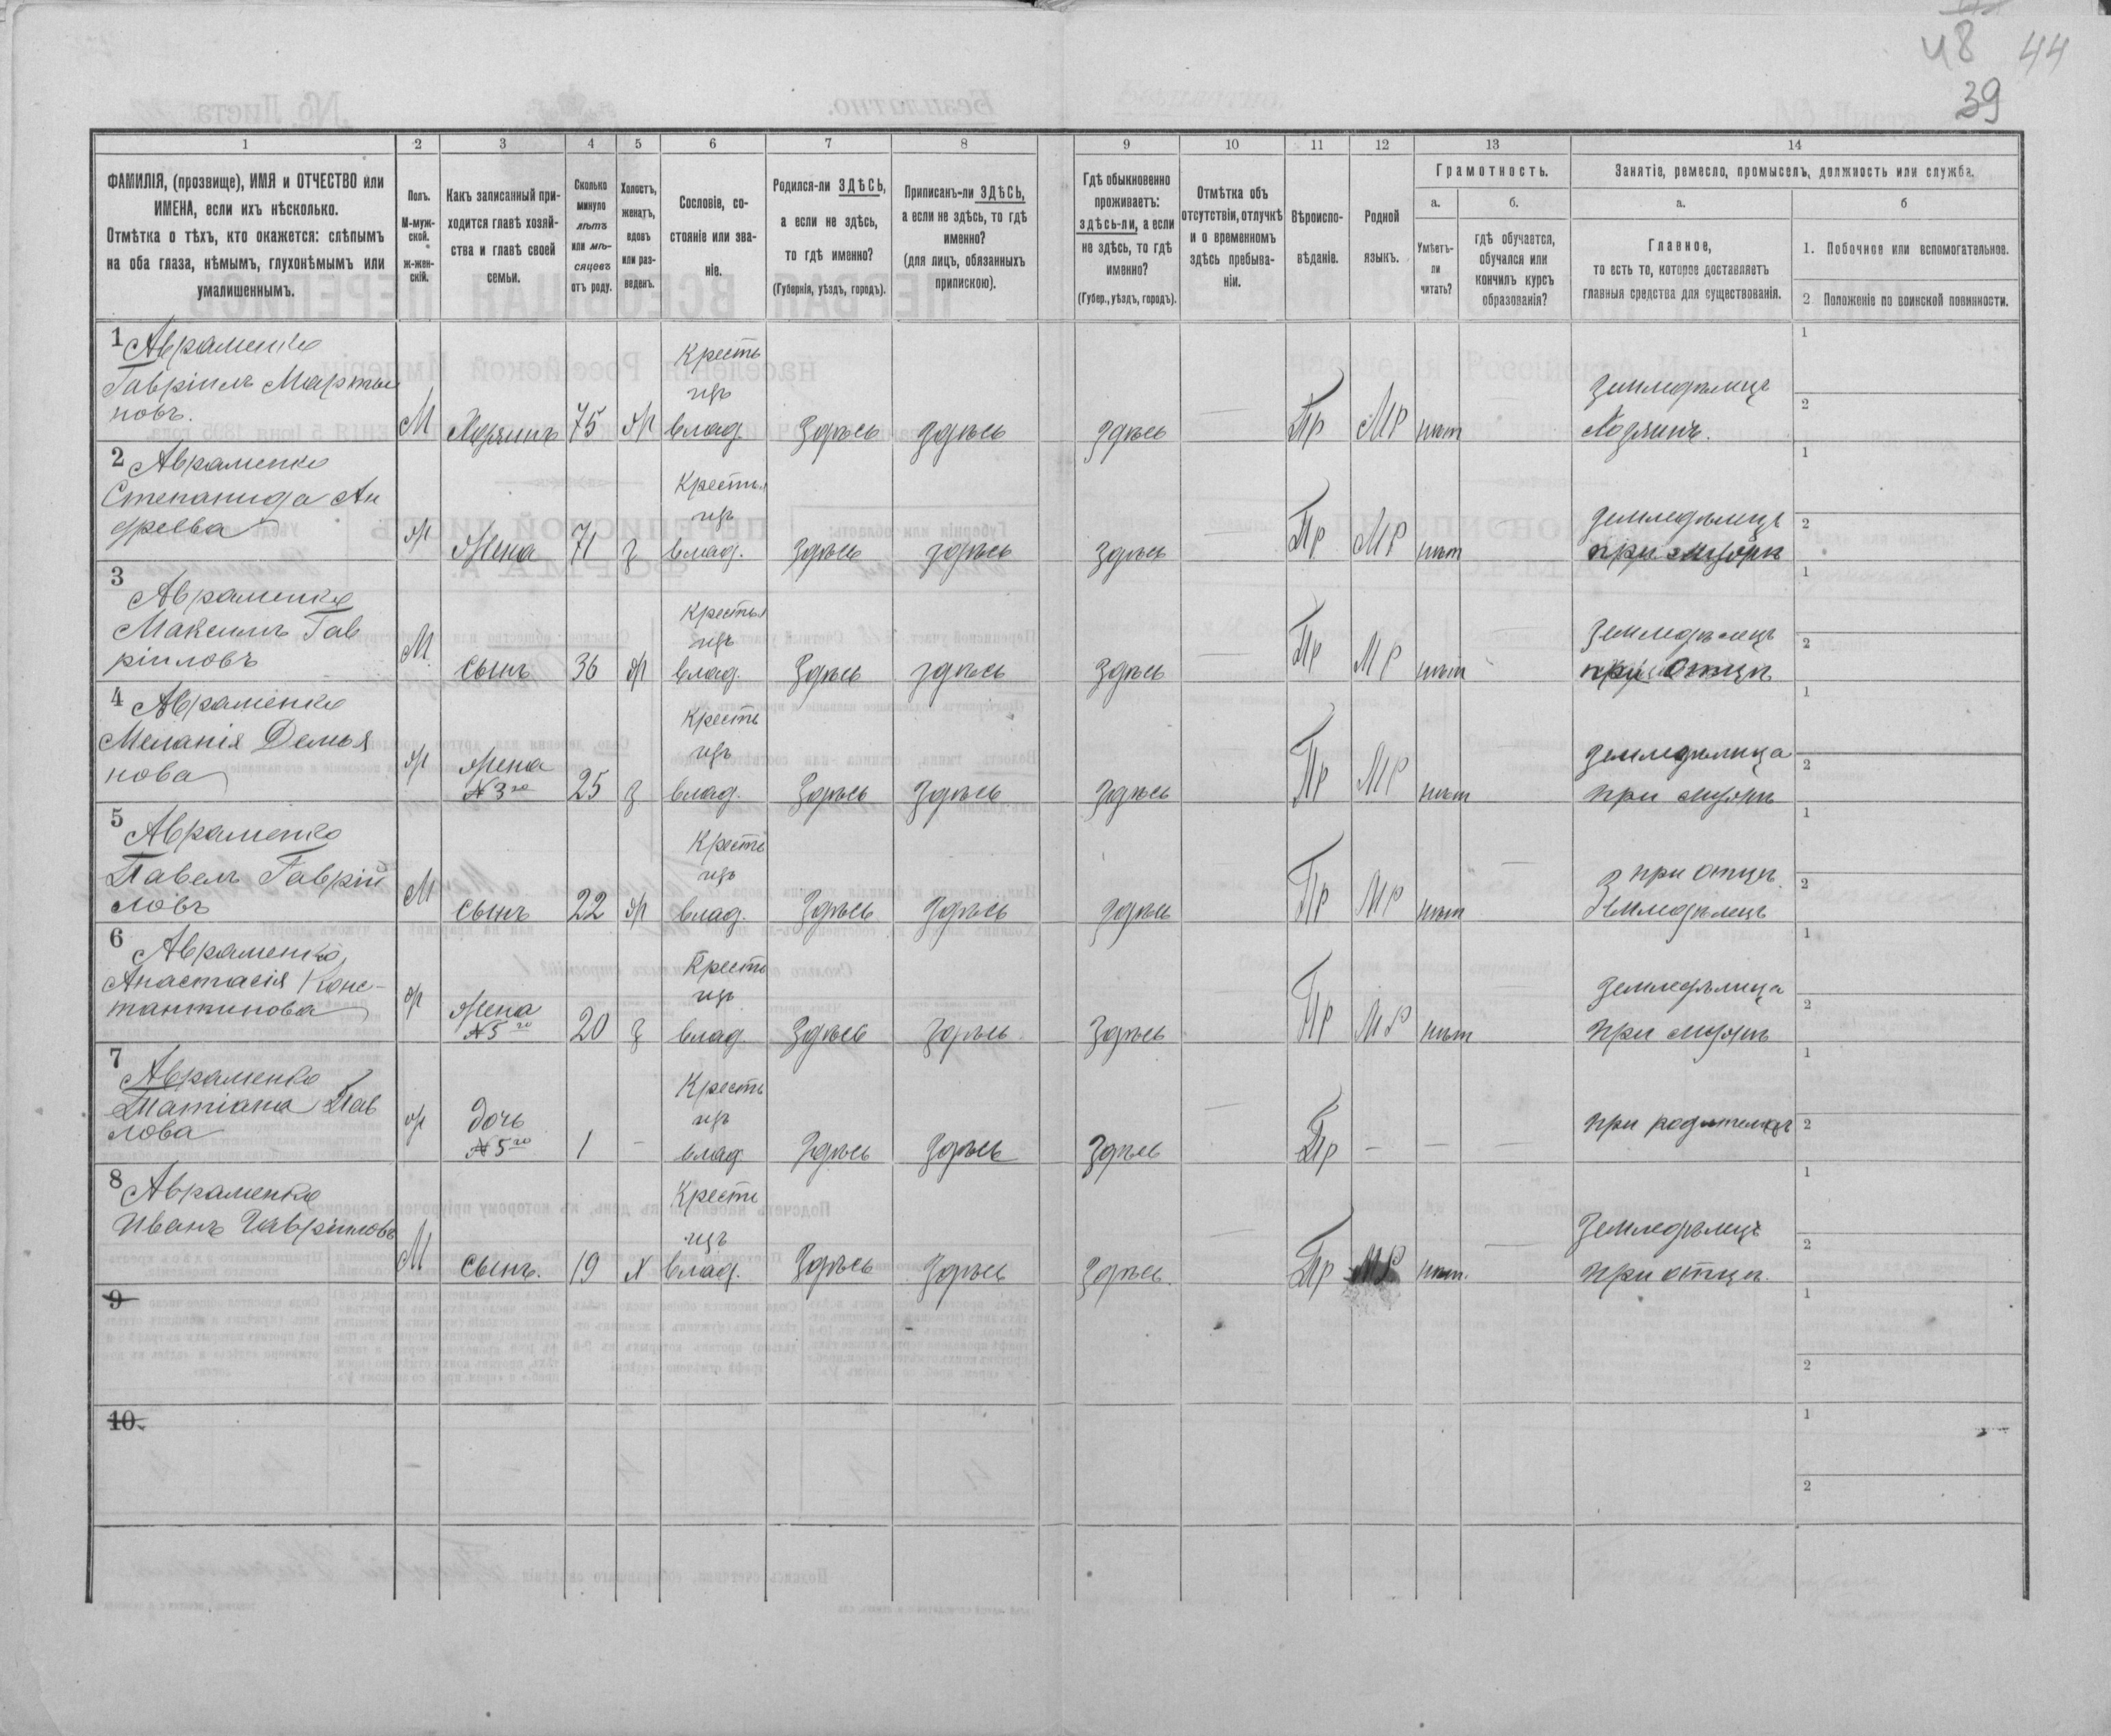 48 44
39
1 2 3 4 5 6 7 8 9 10 11 12 13 14
ФАМИЛІЯ, (прозвище), ИМЯ и ОТЧЕСТВО или
ИМЕНА, если ихъ нѣсколько.
Отмѣтка о тѣхъ, кто окажется: слѣпымъ
на оба глаза, нѣмымъ, глухонѣмымъ или
умалишеннымъ.
Полъ.
М-муж-
ской.
ж-жен-
скій.
Какъ записанный при-
ходится главѣ хозяй-
ства и главѣ своей
семьи.
Сколько
минуло
лѣтъ
или мѣ-
сяцевъ
отъ роду.
Холостъ,
женатъ,
вдовъ
или раз-
веденъ.
Сословіе, со-
стояніе или зва-
ніе.
Родился-ли ЗДѢСЬ,
а если не здѣсь,
то гдѣ именно?
(Губернія, уѣздъ, городъ).
Приписанъ-ли ЗДѢСЬ,
а если не здѣсь, то гдѣ
именно?
(для лицъ, обязанныхъ
припискою).
Гдѣ обыкновенно
проживаетъ:
здѣсь-ли, а если
не здѣсь, то гдѣ
именно?
(Губер., уѣздъ, городъ).
Отмѣтка объ
отсутствіи, отлучкѣ
и о временномъ
здѣсь пребыва-
ніи.
Вѣроиспо-
вѣданіе.
Родной
языкъ.
Грамотность.
а.
Умѣетъ-
ли
читать?
б.
гдѣ обучается,
обучался или
кончилъ курсъ
образованія?
Занятіе, ремесло, промыселъ, должность или служба.
а.
Главное,
то есть то, которое доставляетъ
главныя средства для существованія.
б
1. Побочное или вспомогательное.
2 Положеніе по воинской повинности.
1 Авраменко
Гавріилъ Марты
новъ.
М Хозяинъ 75 ж
Кресть
изъ
влад.
Здѣсь здѣсь здѣсь — Пр МР нѣт
Земледѣлецъ
Хозяинъ.
1
2
2 Авраменко
Степанида Ан
дреева
ж Жена 71 з
Крестья
изъ
влад.
Здѣсь здѣсь здѣсь — Пр МР нѣт
Земледѣлецъ
при мужѣ
1
2
3
Авраменко
Максимъ Гав
ріиловъ
М. сынъ 36 ж
Крестья
изъ
влад.
Здѣсь здѣсь здѣсь Пр МР нѣт
Земледѣлецъ
при отцѣ
1
2
4 Авраменко
Меланія Демья
нова
ж Жена
№ 3го
25 з
Кресть
изъ
влад.
Здѣсь Здѣсь здѣсь — Пр МР нѣт
Земледѣлица
при мужѣ
1
2
5
Авраменко
Павелъ Гаврій
ловъ
М сынъ 22 ж
Кресть
изъ
влад.
Здѣсь Здѣсь здѣсь — Пр МР нѣт —
при отцѣ.
Земледѣлецъ
1
2
6
Авраменко,
Анастасія Конс-
тантинова
ж Жена
№ 5го
20 з
Кресть
изъ
влад.
Здѣсь Здѣсь Здѣсь — Пр МР нѣт —
Земледѣлица
При мужѣ
1
2
7
Авраменко
Татіана Пав
лова
ж дочь
№ 5го
1 —
Кресть
изъ
влад.
Здѣсь Здѣсь Здѣсь — Пр — — —
при родителяхъ
1
2
8
Авраменко
Иванъ Гавріиловъ
М сынъ. 19 х
Кресть
изъ
влад.
Здѣсь Здѣсь Здѣсь. — Пр МР нѣт. —
Земледѣлецъ
При отцѣ.
1
2
9
1
2
10.
1
2